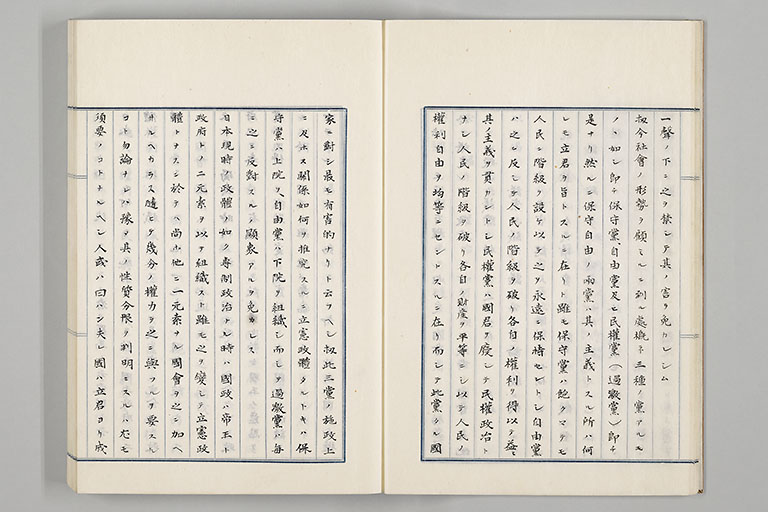 一聲ノ下ニ之ヲ禁シテ其ノ害ヲ免カレシム
扨今社會ノ形勢ヲ顧ミルニ到ル處概子三種ノ黨アルモ
ノヽ如シ即チ保守黨、自由黨及ヒ民權黨(過激黨)即チ
是ナリ然ルニ保守自由ノ兩黨ハ其ノ主義トスル所ハ何
レモ立君ヲ旨トスルニ在リト雖モ保守黨ハ飽クマテモ
人民ニ階級ヲ設ケ以テ之ヲ永遠ニ保持セントシ自由黨
ハ之レニ反シテ人民ノ階級ヲ破リ各自ノ權利ヲ得以テ益々
其ノ主義ヲ貫カントシ民權黨ハ國君ヲ廢シテ民權政治ト
ナシ人民ノ階級ヲ破リ各自ノ財産ヲ平等ニシ以テ人民ノ
權利自由ヲ均等ニセントスルニ在リ而シテ此黨タル國
家ニ對シ最モ有害的ナリト云フヘシ扨此三黨ノ施政上
ニ及ホス關係如何ヲ推究スルニ立憲政體タルトキハ保
守黨ハ上院ヲ、自由黨ハ下院ヲ組織シ而シテ過激黨ハ毎
ニ之ニ反對スルノ顯象アルヲ免カレス
日本現時ノ政體ノ如ク專制政治トレ時ハ國政ハ帝王ト
政府トノ二元素ヲ以テ組織スト雖モ之ヲ變シテ立憲政
體トナスニ於テハ尚ホ他ニ一元素ナル國會ヲ之ニ加ヘ
サルヘカラス隨ヒテ幾分ノ權力ヲ之ニ與フルヲ要スル
コト勿論ナレハ豫メ其ノ性質分限ヲ判明ニスルハ尤モ
須要ノコトナルヘシ人或ハ曰ハン夫レ國ハ立君ヨリ成